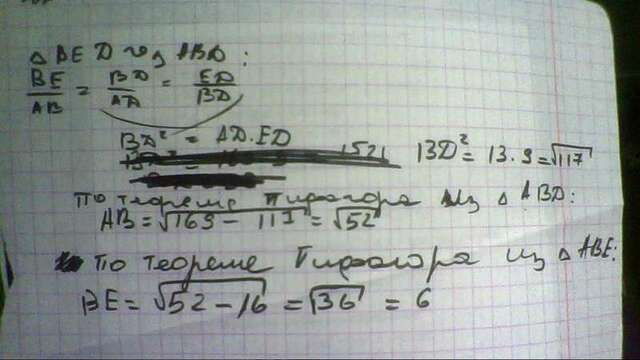 △ BED ∾ △ ABD:
BE/AB = BD/AD = ED/BD
BD² = AD·ED
BD² = 13·9 = √117
По теореме Пифагора из △ ABD:
AB = √169 - 117 = √52
По теореме Пифагора из △ ABE:
BE = √52-16 = √36 = 6